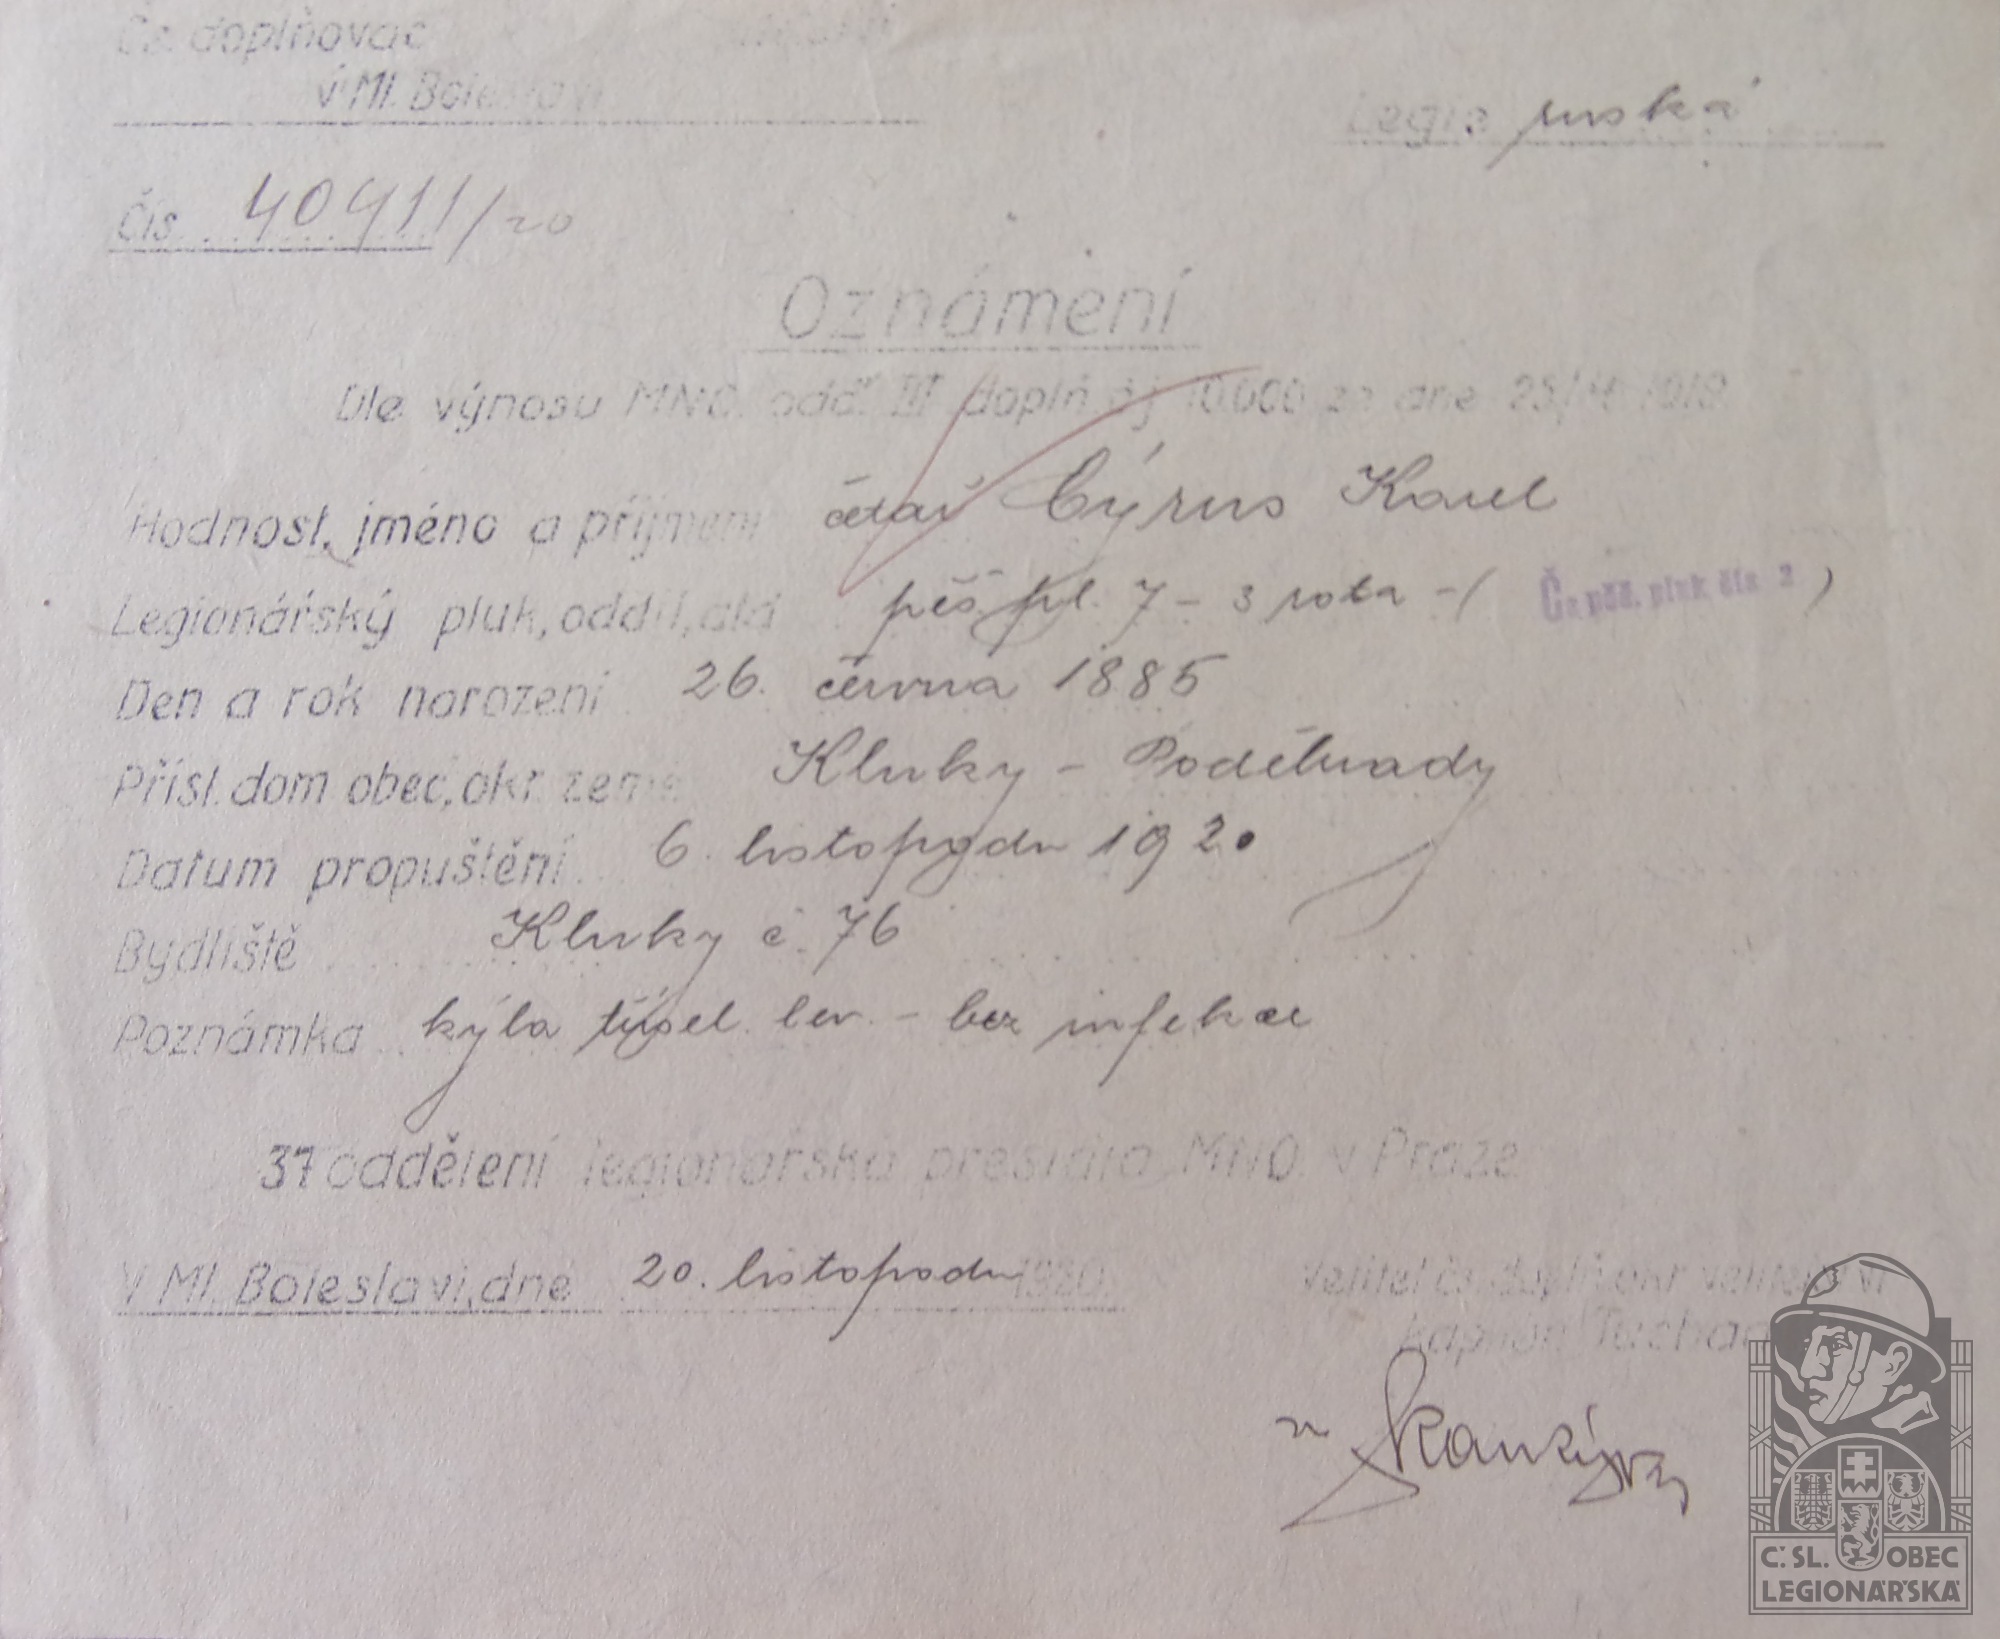 Čs. doplňovac
v Ml. Boleslavi
Legie ruská
Čís. 40911/20
Oznámení
Dle výnosu MNO. odd. III doplň čj 10.000 ze dne 1919
Hodnost, jméno a příjmení četař Cýrus Karel
Legionářský pluk, oddíl, atd pěš. pl. 7 - 3 rota - ( Čs. pěš. pluk čís. 2 )
Den a rok narození 26. června 1885
Přísl. dom. obec, okr. země Kluky - Poděbrady
Datum propuštění 6. listopadu 1920
Bydliště Kluky č. 76
Poznámka kýla třísel. lev. - bez infekce
37 oddělení legionářské presidia MNO. v Praze
V Ml. Boleslavi, dne 20. listopadu 1920.
Velitel čs. doplň. okr. velitelství
kapitán
Č.SL. OBEC
LEGIONÁŘSKÁ